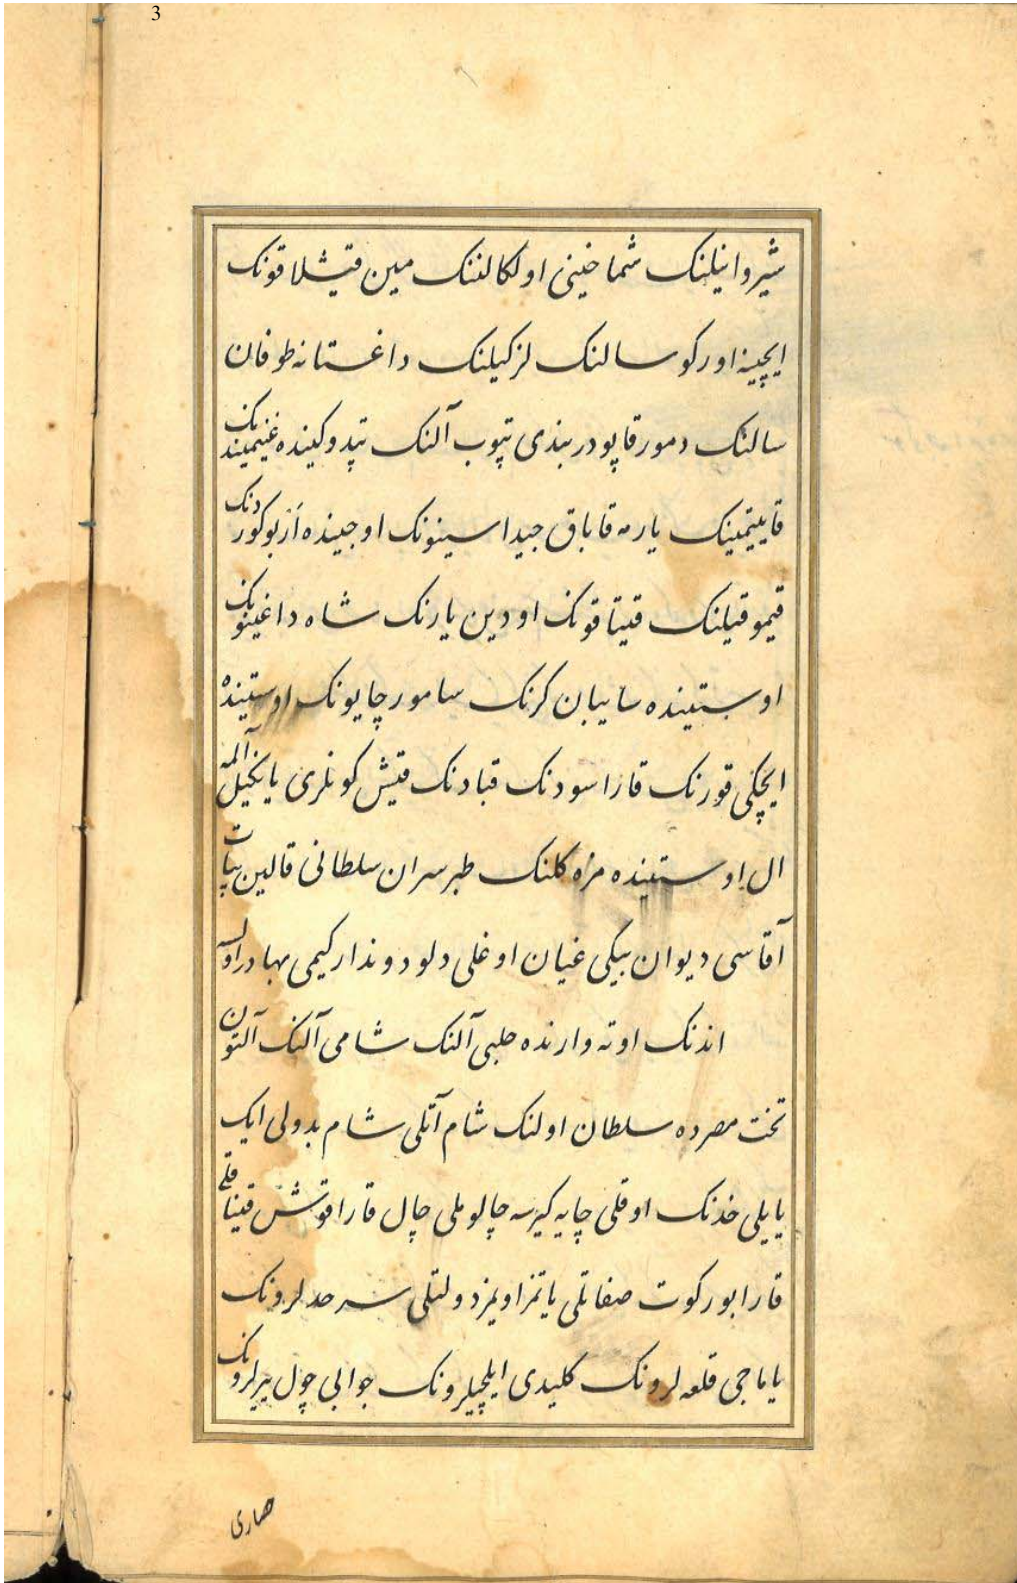 3
شیروانیلنک شماخینی اولکالننک مین قیشلاقونک
ایچینه اورکو سالنک لزکیلنک داغستانه طوفان
سالنک دمور قاپو دربندی تپوب آلنک تپدوکینده غنیمینک
قاییتمینک یارمه قاباق جیداسینونک اوجینده از بوکوردنک
قیموقیلنک قیتاقونک اودین یارنک شاه داغینونک
اوستینده سایبان کرنک سامور چایونک اوستینده
ایچکی قورنک قارا سودنک قبادنک قیش کونلری یانکیل آلمه
ال اوستینده مزه کلنک طبرسران سلطانی قالین بیات
آقاسی دیوان بیکی غیان اوغلی دلو دوندار کیمی بهادر اوله
اندنک اوته وارنده حلبی آلنک شامی آلنک آلتون
تخت مصرده سلطان اولنک شام آتلی شام بدولی ایک
یایلی خدنک اوقلی چایه کیرسه چالوملی چال قارا قوش قیناقلی
قارا بورکوت صفاتلی یاتمز اویمز دولتلی سرحدلرونک
یاباجی قلعه لرونک کلیدی ایلچیلرونک جوابی چول ییرلرونک